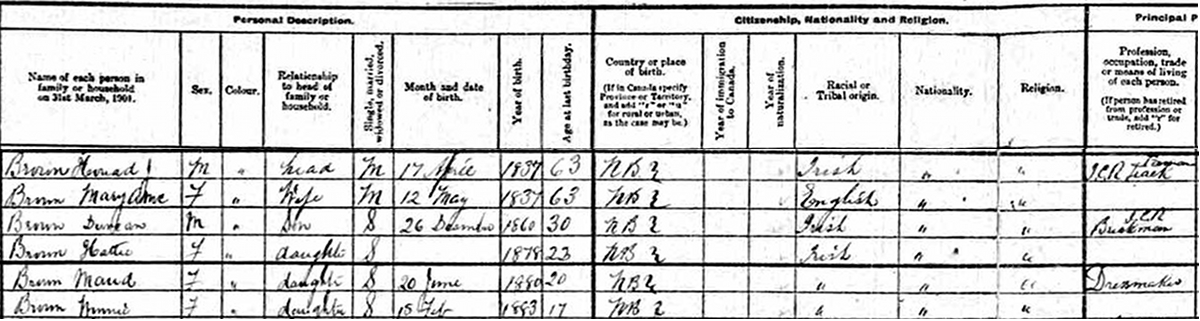 Personal Description. Citizenship, Nationality and Religion. Principal P
Name of each person in family or household on 31st March, 1901. Sex. Colour. Relationship to head of family or household. Single, married, widowed or divorced. Month and date of birth. Year of birth. Age at last birthday. Country or place of birth. (If in Canada specify Province or Territory, and add "r" or "u" for rural or urban, as the case may be.) Year of immigration to Canada. Year of naturalization. Racial or Tribal origin. Nationality. Religion. Profession, occupation, trade or means of living of each person. (If person has retired from profession or trade, add "r" for retired.)
Brown J M " head M 17 1837 63 N B Irish " " I.C.R Track
Brown Mary Ame F " Wife M 12 May 1837 63 N B English " "
Brown Duncan M " Son S 26 1860 30 N B Irish " " I.C.R
Brown Hattie F " daughter S 1878 23 N B Irish " "
Brown Maud F " daughter S 20 June 1880 20 N B " " " Dressmaker
Brown Minnie F " daughter S 15 Feb 1883 17 N B " " "